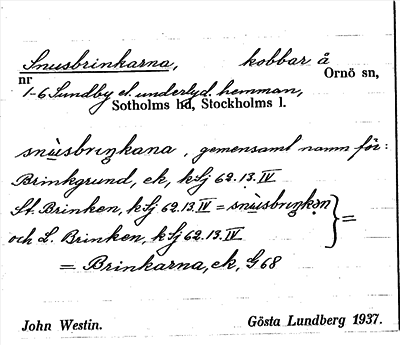 Snusbrinkarna, kobbar å
nr Ornö sn,
1-6 Sundby el. underlyd. hemman,
Sotholms hd, Stockholms l.
snùsbriŋkana, gemensamt namn för:
Brinkgrund, ek, kSj 62.13.IV
St. Brinken, kSj 62.13.IV = snùsbriŋkən
och L. Brinken, kSj 62.13.IV } =
= Brinkarna, ek, G 68
John Westin. Gösta Lundberg 1937.